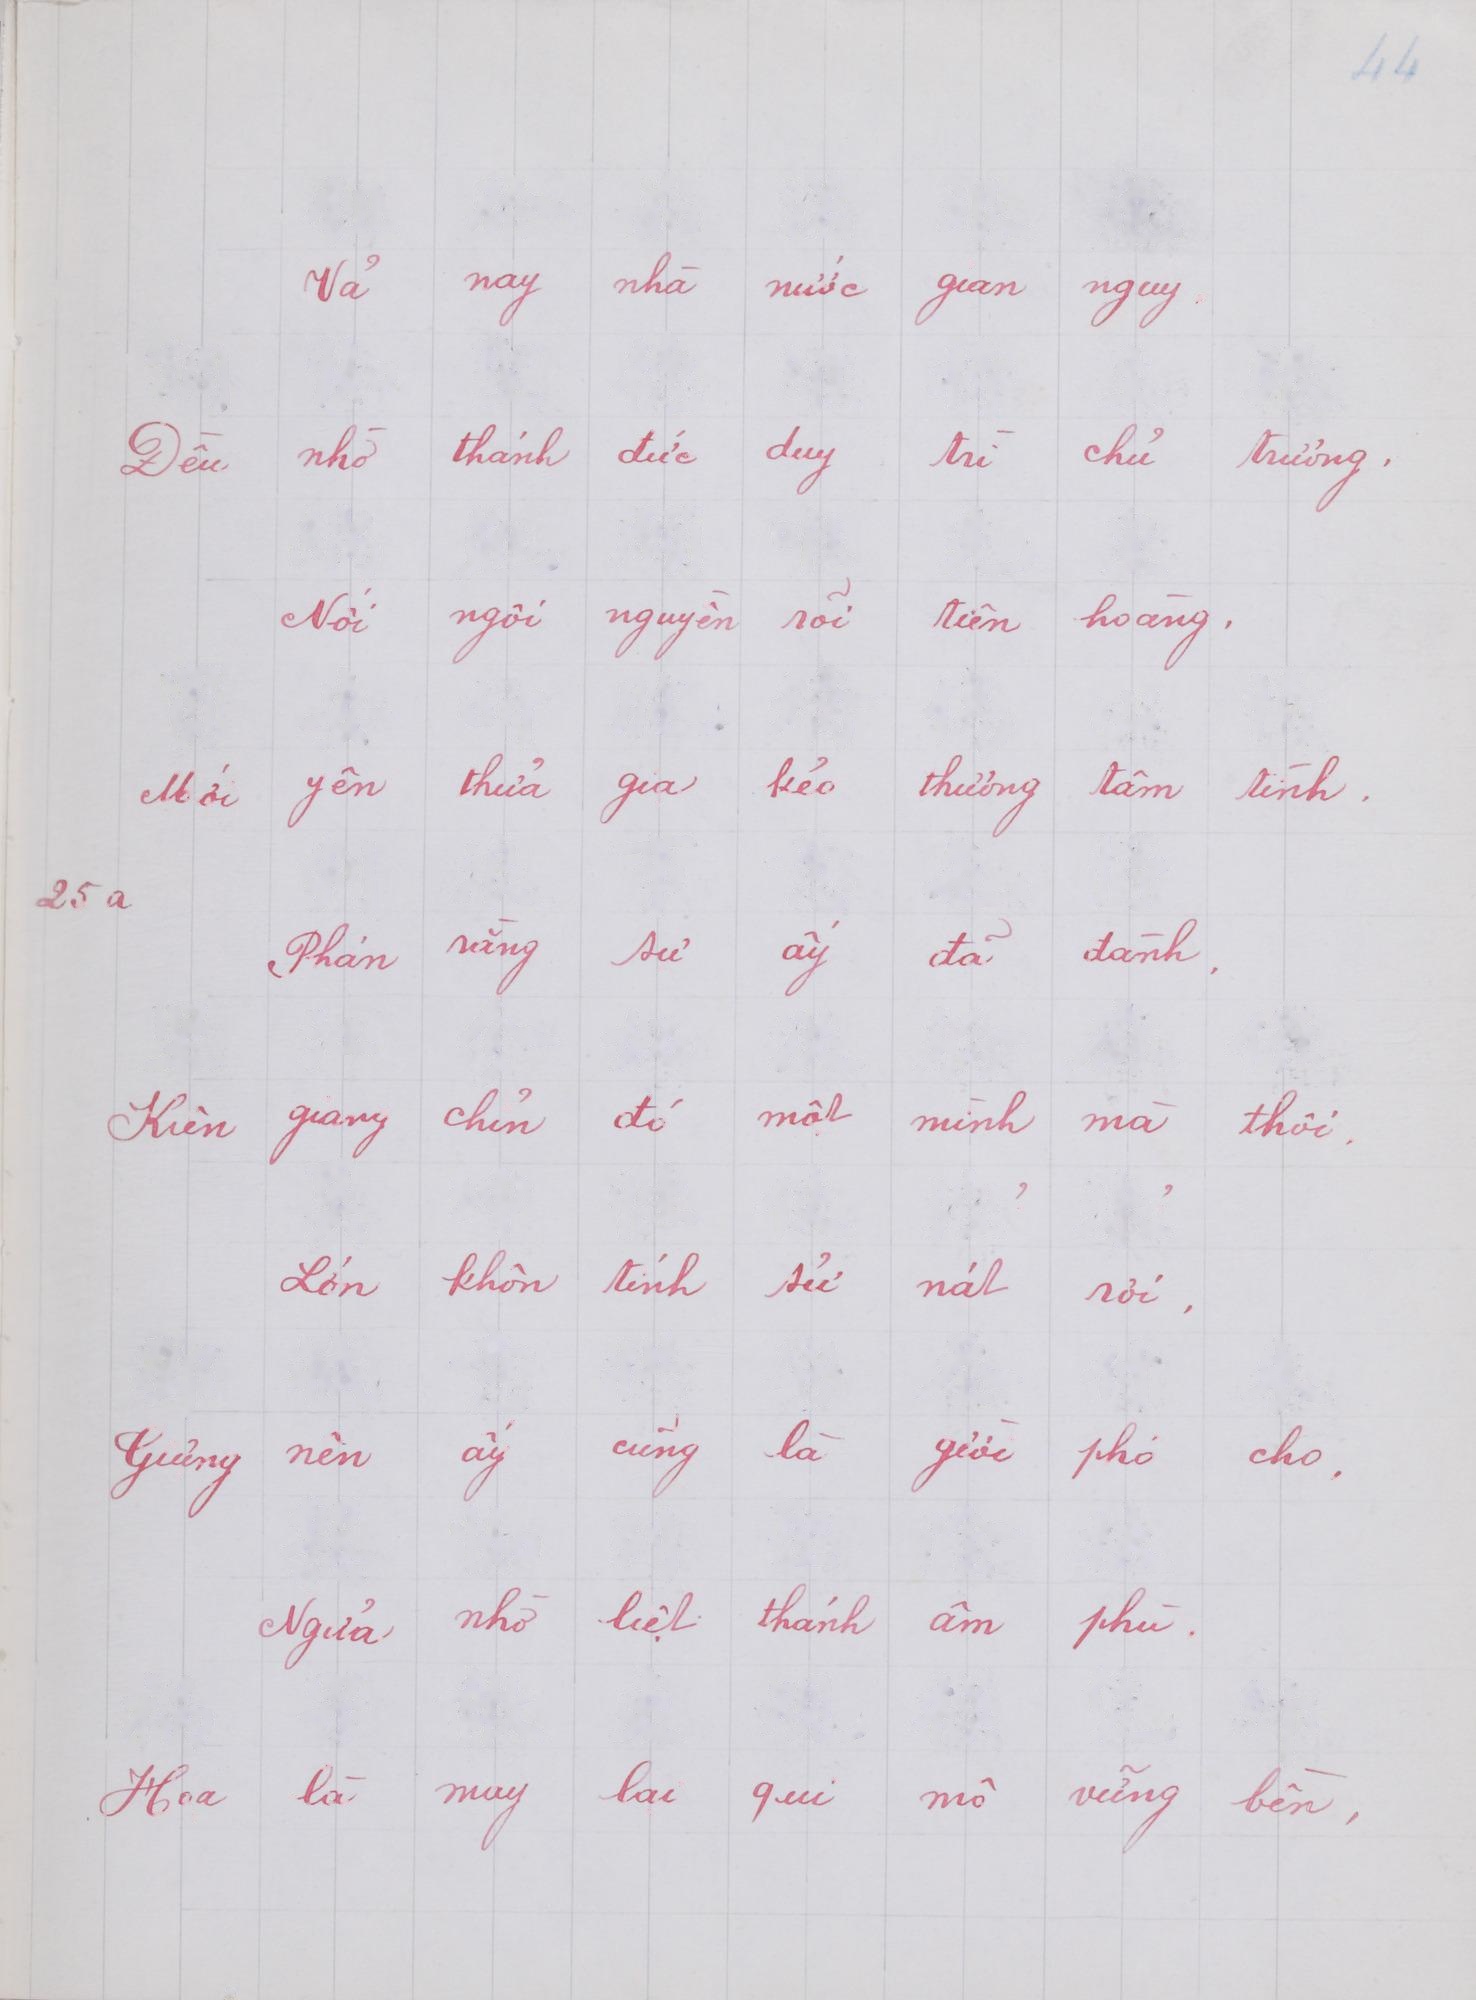 44
Vả nay nhà nước gian nguy.
Đều nhờ thánh đức duy trì chủ trương,
Nối ngôi nguyền rỗi tiên hoàng,
Mới yên thửa gia kẻo thương tâm tình.
25 a
Phán rằng sự ấy đã đành,
Kiên giang chỉn đó một mình mà thôi.
Lớn khôn tính sử nát rơi,
Gưởng nên ấy cũng là giời phó cho,
Ngửa nhờ liệt thánh âm phù.
Họa là may lai qui mô vững bền,